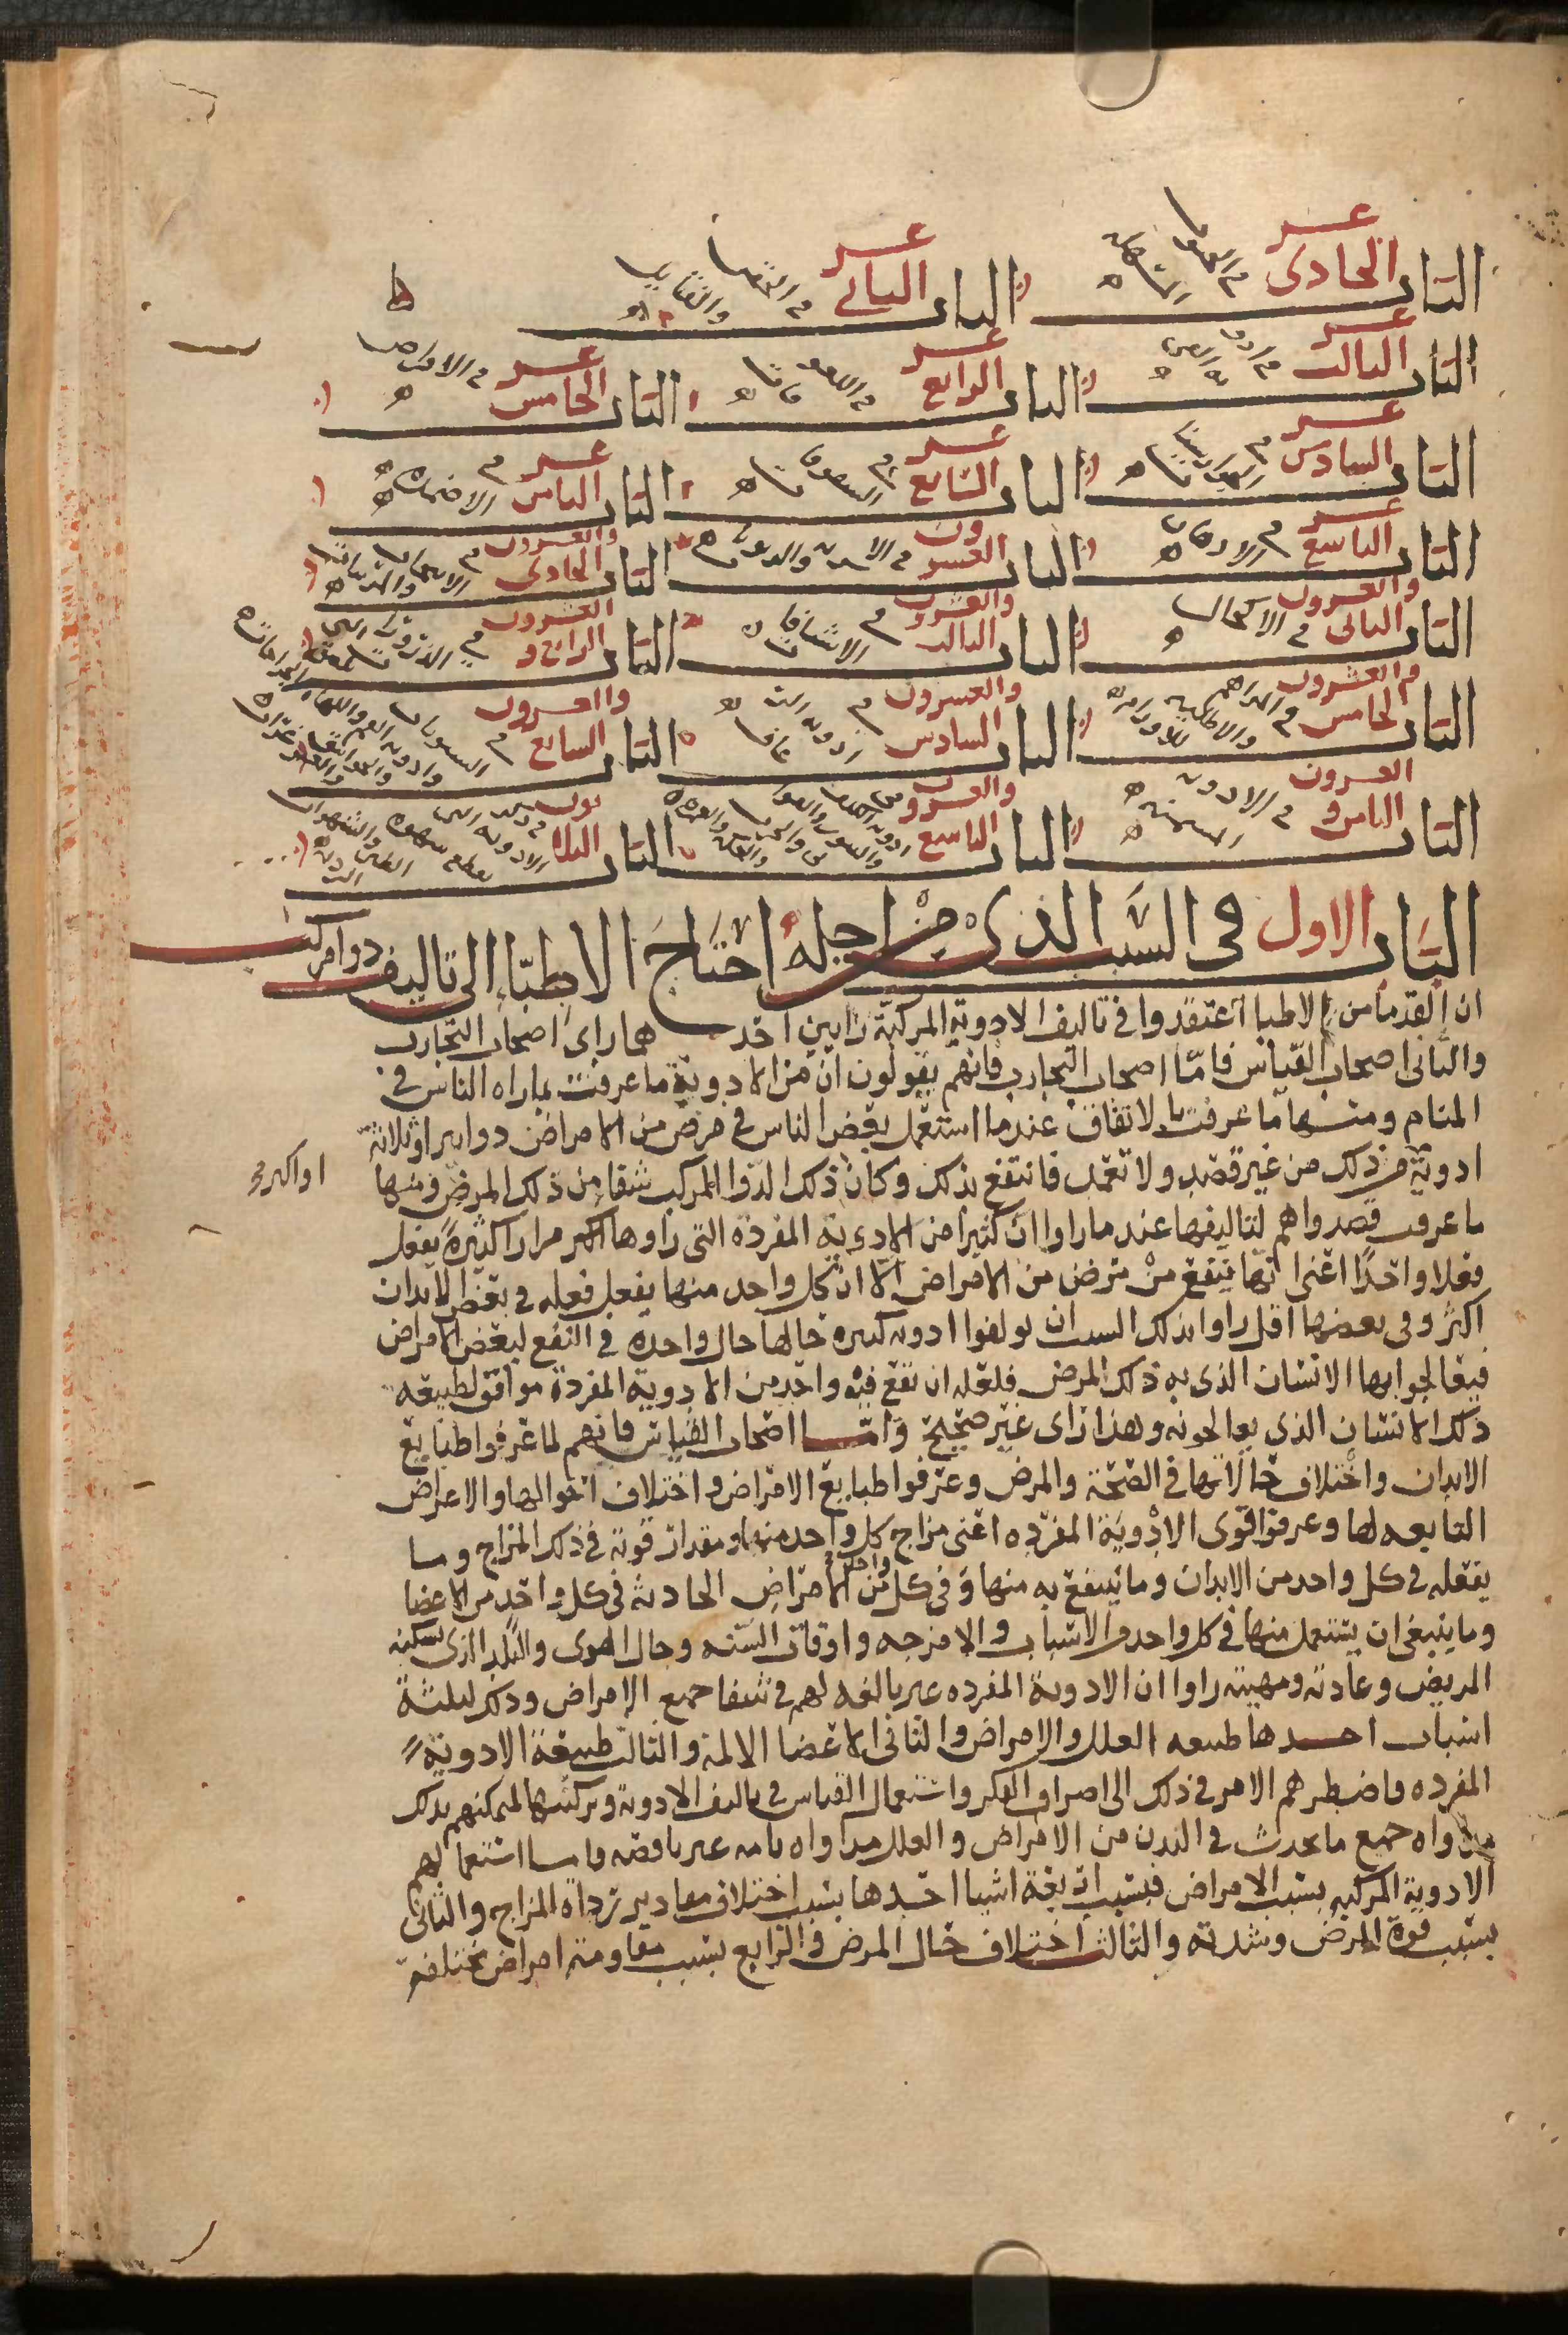 الباب الحادى عشر في الحبوب المسهلة الباب الثانى عشر في الحقن والفتايل
الباب الثالث عشر في ادوية القى الباب الرابع عشر في اللعوقات الباب الخامس عشر في الاقراص
الباب السادس عشر في الجوارشنات الباب السابع عشر في السفوفات الباب الثامن عشر في الاضمدة
الباب التاسع عشر في الادهان الباب العشرون في الاشربة والربوبات الباب الحادى والعشرون في الانبجات والمربيات
الباب الثانى والعشرون في الاكحال الباب الثالث والعشرون في الاشيافات الباب الرابع والعشرون في الذرورات التى للجراحات
الباب الخامس والعشرون في المراهم والاطلية للاورام الباب السادس والعشرون في ادوية الباب السابع والعشرون في السنونات وادوية الفم واللهاة والغرغرات
الباب الثامن والعشرون في الادوية المسمنة الباب التاسع والعشرون في ادوية الباب الثلاثون في ذكر الادوية التى تقطع شهوة الطين والشهوات الردية
الباب الاول في السبب الذى من اجله احتاج الاطبّاء الى تاليف دوا مركب
ان القدما من الاطبا اعتقدوا في تاليف الادوية المركبة رايين احدهما راى اصحاب التجارب
والثانى اصحاب القياس فامّا اصحاب التجارب فانهم يقولون ان من الادوية ما عرفت بما راه الناس في
المنام ومنها ما عرفت بالاتفاق عندما استعمل بعض الناس في مرض من الامراض دواين او ثلاثة
او اكثر
ادوية من ذلك من غير قصد ولا تعمد فانتفع بذلك وكان ذلك الدوا المركب شفا من ذلك المرض ومنها
ما عرف قصدوا هم لتاليفها عند ما راوا ان كثيرا من الادوية المفردة التى راوها اكثر مرارا كثيرة يفعل
فعلا واحدًا اعنى انها ينتفع من مرض من الامراض الا ان كل واحد منها يفعل فعله في بعض الابدان
اكثر وفى بعضها اقل راوا بذلك السبب ان يولفوا ادوية كثيرة حالها حال واحدة في النفع لبعض الامراض
فيعالجوا بها الانسان الذى به ذلك المرض فلعله ان تقع فيه واحد من الادوية المفردة موافق لطبيعة
ذلك الانسان الذى يعالجونه وهذا راى غير صحيح وامّا اصحاب القياس فانهم لما عرفوا طبايع
الابدان واختلاف حالاتها في الصحة والمرض وعرفوا طبايع الامراض واختلاف احوالها والاعراض
التابعه لها وعرفوا قوى الادوية المفرده اعنى مزاج كل واحد منها ومقدار قوته في ذلك المزاج وما
يفعله في كل واحد من الابدان وما ينتفع به منها وفى كل واحد من الامراض الحادثة في كل واحد من الاعضا
وما ينبغى ان يستعمل منها في كل واحد من الاسباب والامزجه واوقات السنه وحال الهوى والبلد الذى يسكنه
المريض وعادته ومهنته راوا ان الادوية المفرده غير بالغه لهم في شفا جميع الامراض وذلك لثلثة
اسباب احدها طبيعه العلل والامراض والثانى الاعضا الالمة والثالث طبيعة الادوية
المفرده فاضطرهم الامر في ذلك الى اصراف الفكر واستعمال القياس في تاليف الادوية وتركيبها ليمكنهم بذلك
مداواه جميع ما يحدث في البدن من الامراض والعلل مداواه تامه غير ناقصه فاما استعمالهم
الادوية المركبه بسبب الامراض فبسبب اربعة اشيا احدها بسبب اختلاف مقادير رداة المزاج والثانى
بسبب قوة المرض وشدته والثالث اختلاف حال المرض والرابع بسبب مقاومة امراض مختلفة